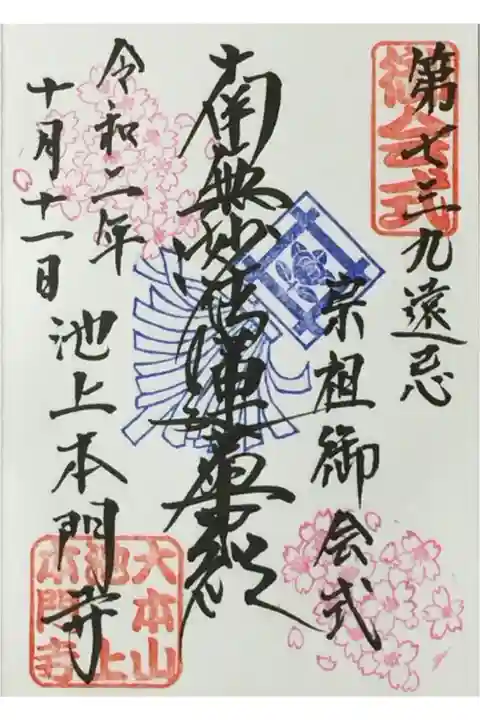 第七三九遠忌
御会式
宗祖御会式
南無妙法蓮華経
令和二年
十月十一日
池上本門寺
大本山
池上
本門寺